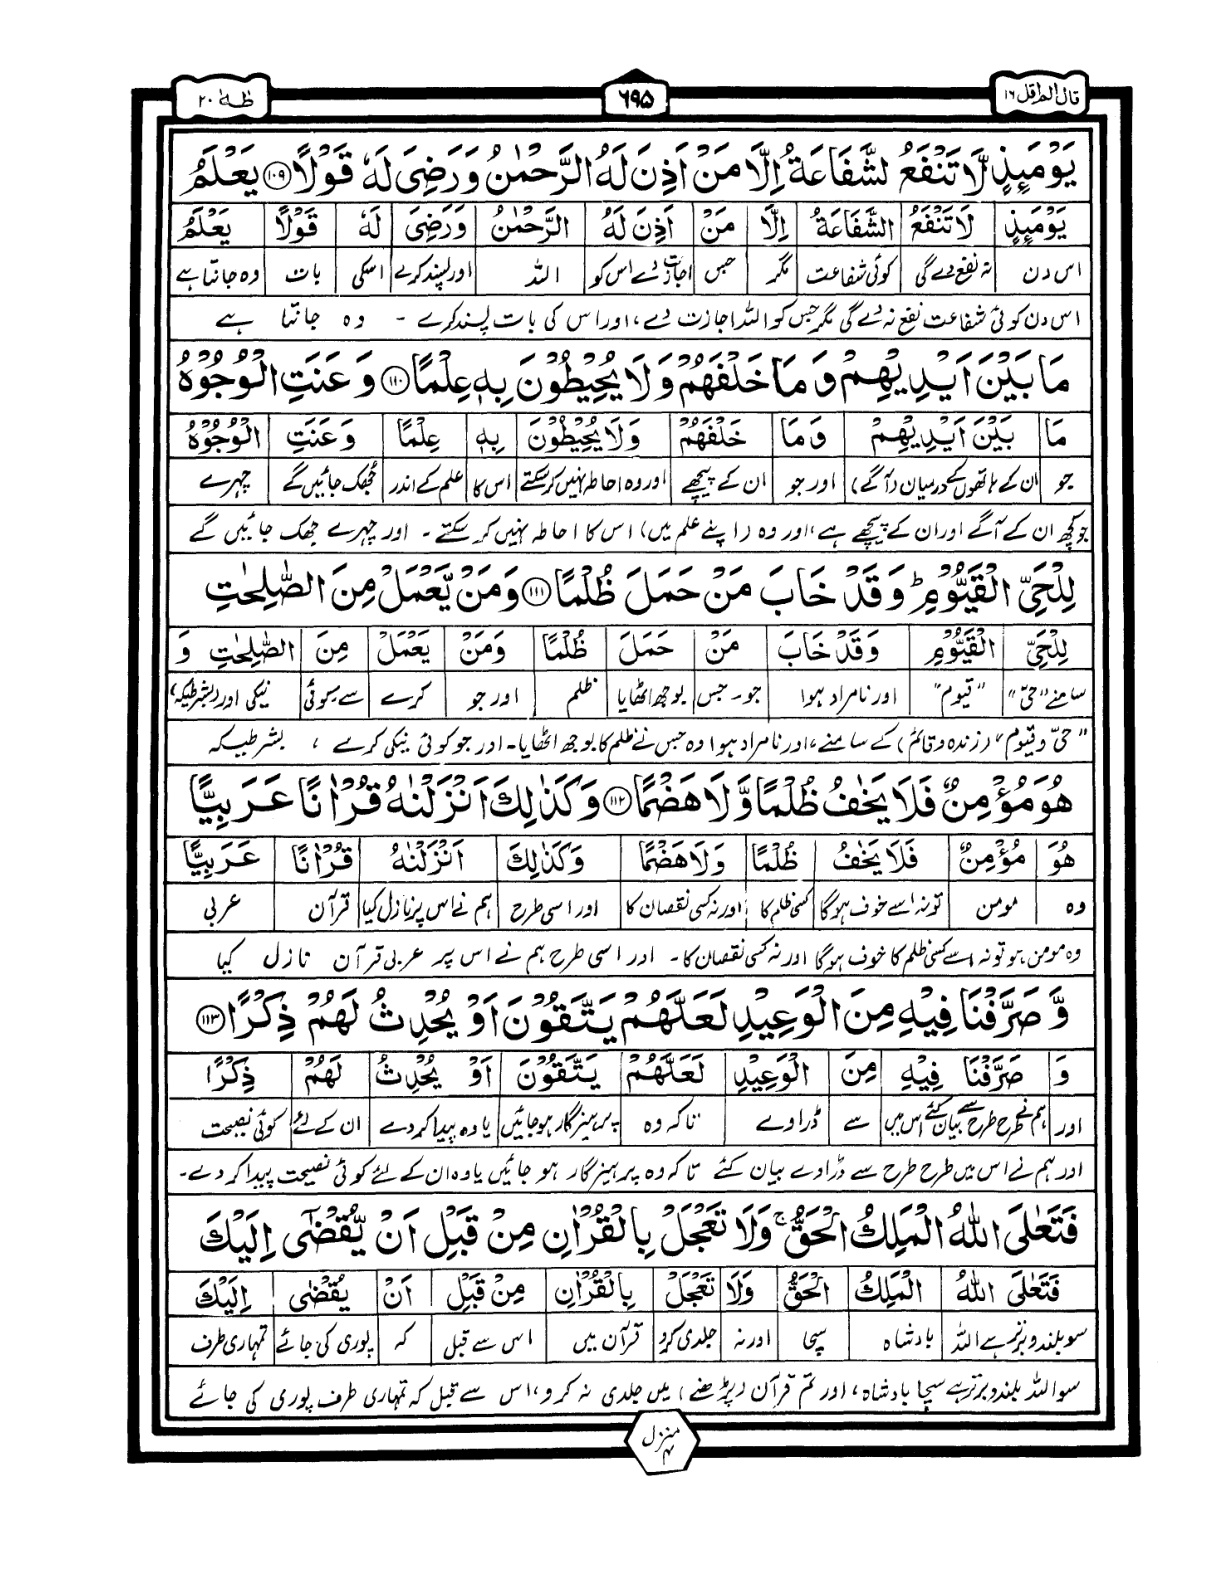 قال الم اقل ١٦
٦٩٥
طٰهٰ ٢٠
يَوْمَىِٕذٍ لَّا تَنْفَعُ الشَّفَاعَةُ اِلَّا مَنْ اَذِنَ لَهُ الرَّحْمٰنُ وَرَضِىَ لَهٗ قَوْلًا ١٠٩ يَعْلَمُ
يَوْمَىِٕذٍ لَا تَنْفَعُ الشَّفَاعَةُ اِلَّا مَنْ اَذِنَ لَهُ الرَّحْمٰنُ وَرَضِىَ لَهٗ قَوْلًا يَعْلَمُ
اس دن نہ نفع دے گی کوئی شفاعت مگر جس اجازت دے اس کو اللہ اور پسند کرے اسکی بات وہ جانتا ہے
اس دن کوئی شفاعت نفع نہ دے گی مگر جس کو اللہ اجازت دے، اور اس کی بات پسند کرے ۔ وہ جانتا ہے
مَا بَيْنَ اَيْدِيْهِمْ وَمَا خَلْفَهُمْ وَلَا يُحِيْطُوْنَ بِهٖ عِلْمًا ١١٠ وَعَنَتِ الْوُجُوْهُ
مَا بَيْنَ اَيْدِيْهِمْ وَمَا خَلْفَهُمْ وَلَا يُحِيْطُوْنَ بِهٖ عِلْمًا وَعَنَتِ الْوُجُوْهُ
جو ان کے ہاتھوں کے درمیان (آگے) اور جو ان کے پیچھے اور وہ احاطہ نہیں کر سکتے اس کا علم کے اندر جھک جائیں گے چہرے
جو کچھ ان کے آگے اور ان کے پیچھے ہے، اور وہ (اپنے علم میں) اس کا احاطہ نہیں کر سکتے ۔ اور چہرے جھک جائیں گے
لِلْحَىِّ الْقَيُّوْمِ ؕ وَقَدْ خَابَ مَنْ حَمَلَ ظُلْمًا ١١١ وَمَنْ يَّعْمَلْ مِنَ الصّٰلِحٰتِ
لِلْحَىِّ الْقَيُّوْمِ وَقَدْ خَابَ مَنْ حَمَلَ ظُلْمًا وَمَنْ يَعْمَلْ مِنَ الصّٰلِحٰتِ وَ
سامنے "حیّ" "قیوم" اور نامراد ہوا جو ۔ جس بوجھ اٹھایا ظلم اور جو کرے سے ۔ کوئی نیکی اور (بشرطیکہ)
"حیّ و قیوم" (زندہ و قائم) کے سامنے، اور نامراد ہوا وہ جس نے ظلم کا بوجھ اٹھایا ۔ اور جو کوئی نیکی کرے ، بشرطیکہ
هُوَ مُؤْمِنٌ فَلَا يَخٰفُ ظُلْمًا وَّلَا هَضْمًا ١١٢ وَكَذٰلِكَ اَنْزَلْنٰهُ قُرْاٰنًا عَرَبِيًّا
هُوَ مُؤْمِنٌ فَلَا يَخٰفُ ظُلْمًا وَلَا هَضْمًا وَكَذٰلِكَ اَنْزَلْنٰهُ قُرْاٰنًا عَرَبِيًّا
وہ مومن تو نہ اسے خوف ہوگا کسی ظلم کا اور نہ کسی نقصان کا اور اسی طرح ہم نے اس پر نازل کیا قرآن عربی
وہ مومن ہو تو نہ اسے کسی ظلم کا خوف ہوگا اور نہ کسی نقصان کا ۔ اور اسی طرح ہم نے اس پر عربی قرآن نازل کیا
وَّ صَرَّفْنَا فِيْهِ مِنَ الْوَعِيْدِ لَعَلَّهُمْ يَتَّقُوْنَ اَوْ يُحْدِثُ لَهُمْ ذِكْرًا ١١٣
وَ صَرَّفْنَا فِيْهِ مِنَ الْوَعِيْدِ لَعَلَّهُمْ يَتَّقُوْنَ اَوْ يُحْدِثُ لَهُمْ ذِكْرًا
اور ہم نے طرح طرح سے بیان کئے اس میں سے ڈراوے تاکہ وہ پرہیزگار ہو جائیں یا وہ پیدا کر دے ان کے لئے کوئی نصیحت
اور ہم نے اس میں طرح طرح سے ڈراوے بیان کئے تاکہ وہ پرہیزگار ہو جائیں یا وہ ان کے لئے کوئی نصیحت پیدا کر دے ۔
فَتَعٰلَى اللّٰهُ الْمَلِكُ الْحَقُّ ۚ وَلَا تَعْجَلْ بِالْقُرْاٰنِ مِنْ قَبْلِ اَنْ يُّقْضٰٓى اِلَيْكَ
فَتَعٰلَى اللّٰهُ الْمَلِكُ الْحَقُّ وَلَا تَعْجَلْ بِالْقُرْاٰنِ مِنْ قَبْلِ اَنْ يُقْضٰى اِلَيْكَ
سو بلند و برتر ہے اللہ بادشاہ سچا اور نہ جلدی کرو قرآن میں اس سے قبل کہ پوری کی جائے تمہاری طرف
سو اللہ بلند و برتر ہے سچا بادشاہ، اور تم قرآن (پڑھنے) میں جلدی نہ کرو، اس سے قبل کہ تمہاری طرف پوری کی جائے
منزل ٤